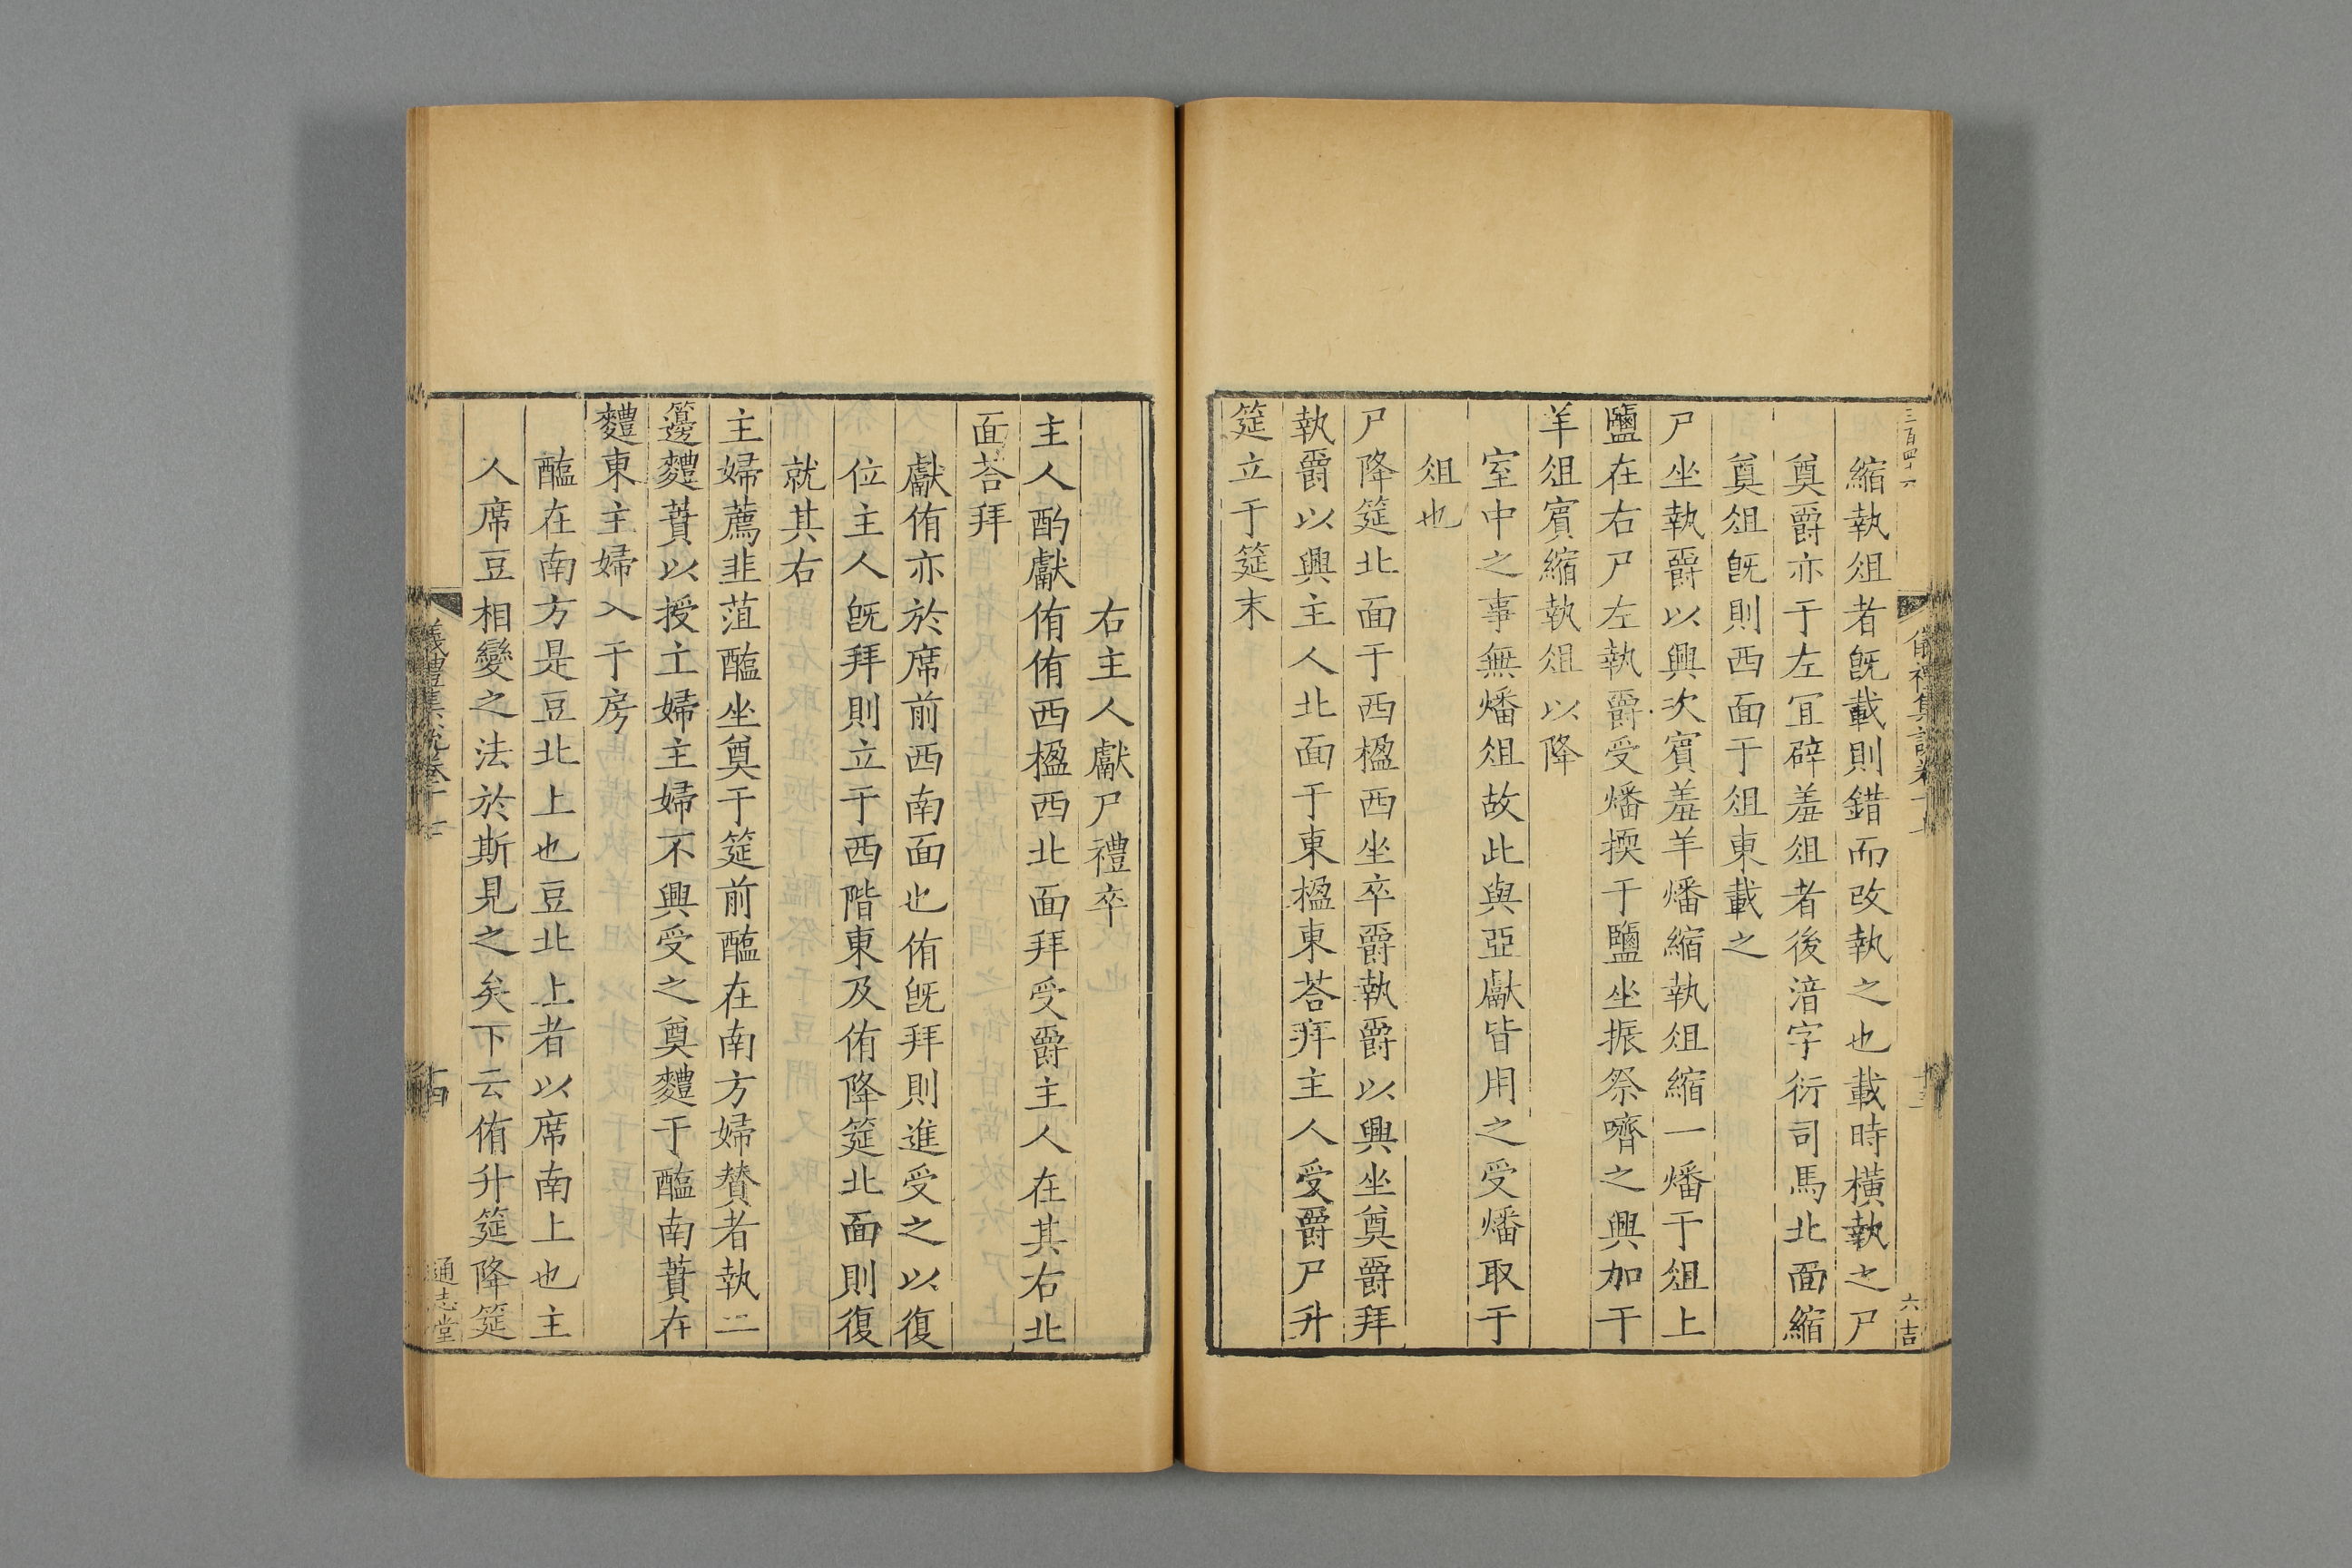 三百四十六
儀禮集說卷十七
十三
六吉
縮執俎者旣載則錯而改執之也載時橫執之尸
奠爵亦于左冝辟羞俎者後湆字衍司馬北面縮
奠俎旣則西面于俎東載之
尸坐執爵以興次賓羞羊燔縮執俎縮一燔于俎上
鹽在右尸左執爵受燔擩于鹽坐振祭嚌之興加于
羊俎賓縮執俎以降
室中之事無燔俎故此與亞獻皆用之受燔取于
俎也
尸降筵北面于西楹西坐卒爵執爵以興坐奠爵拜
執爵以興主人北面于東楹東荅拜主人受爵尸升
筵立于筵末
右主人獻尸禮卒
主人酌獻侑侑西楹西北面拜受爵主人在其右北
面荅拜
獻侑亦於席前西南面也侑旣拜則進受之以復
位主人旣拜則立于西階東及侑降筵北面則復
就其右
主婦薦韭菹醢坐奠于筵前醢在南方婦賛者執二
籩麷蕡以授主婦主婦不興受之奠麷于醢南蕡在
麷東主婦入于房
醢在南方是豆北上也豆北上者以席南上也主
人席豆相變之法於斯見之矣下云侑升筵降筵
儀禮集說卷十七
十四
通志堂